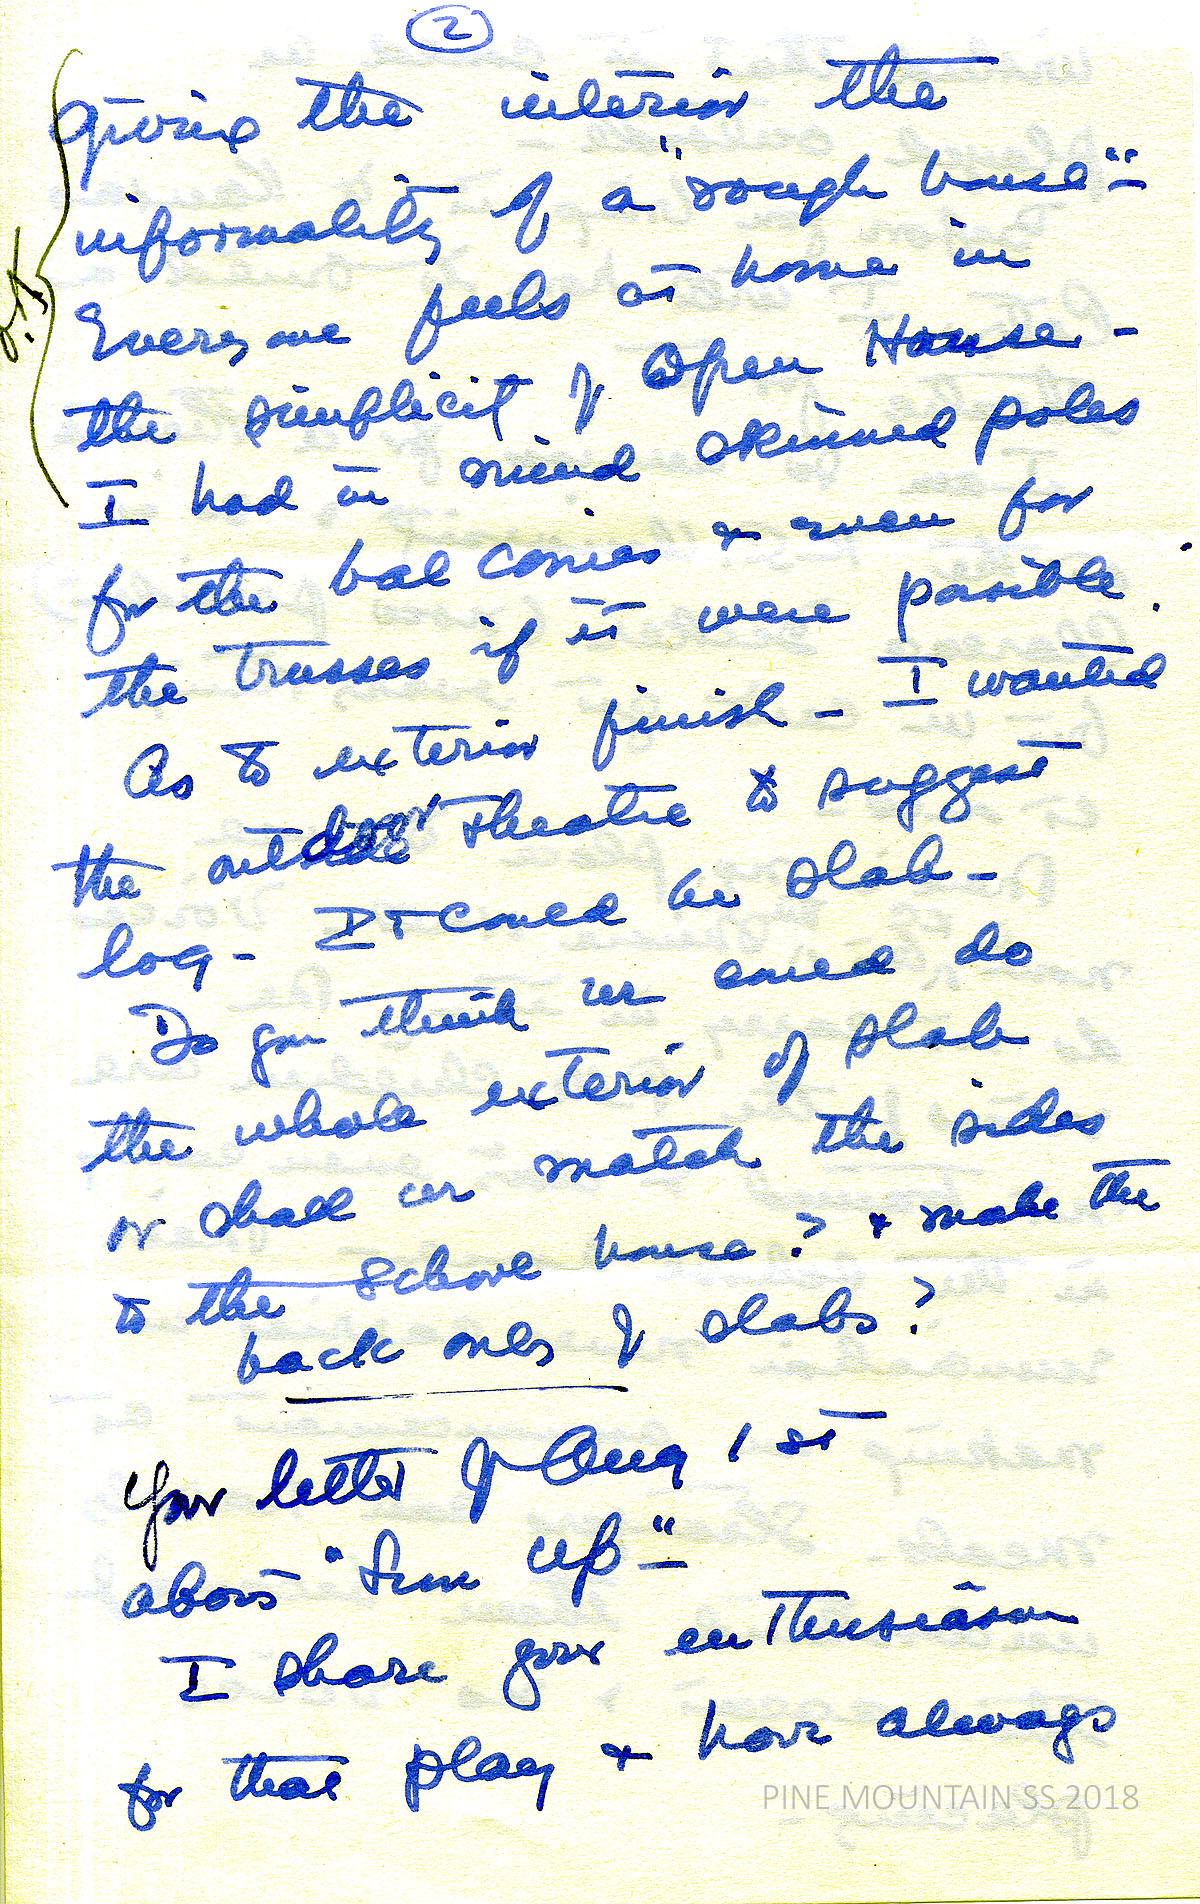 2
giving the interior the
informality of a "rough house" –
Everyone feels at home in
the simplicit of Open House –
I had in mind skinned poles
for the balconies & even for
the trusses if it were possible.
As to exterior finish – I wanted
the outdoor Theatre to suggest
log – It could be slab –
Do you think we could do
the whole exterior of slab
or shall we match the sides
to the School house? & make the
back ones of slabs?
Your letter of Aug 1st
about "Sun Up" –
I share your enthusiasm
for that play & have always
PINE MOUNTAIN SS 2018